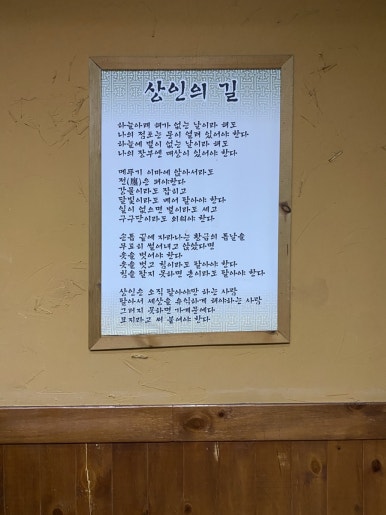 상인의 길
하늘아래 해가 없는 날이라 해도
나의 점포는 문이 열려 있어야 한다
하늘에 별이 없는 날이라 해도
나의 장부엔 매상이 있어야 한다
메뚜기 이마에 앉아서라도
전(廛)은 펴야한다
강물이라도 잡히고
달빛이라도 베어 팔아야 한다
일이 없으면 별이라도 세고
구구단이라도 외워야 한다
손톱 끝에 자라나는 황금의 톱날을
무료히 썰어내고 앉았다면
옷을 벗어야 한다
옷을 벗고 힘이라도 팔아야 한다
힘을 팔지 못하면 혼이라도 팔아야 한다
상인은 오직 팔아야만 하는 사람
팔아서 세상을 유익하게 해야하는 사람
그러지 못하면 가게문에다
묘지라고 써 붙여야 한다